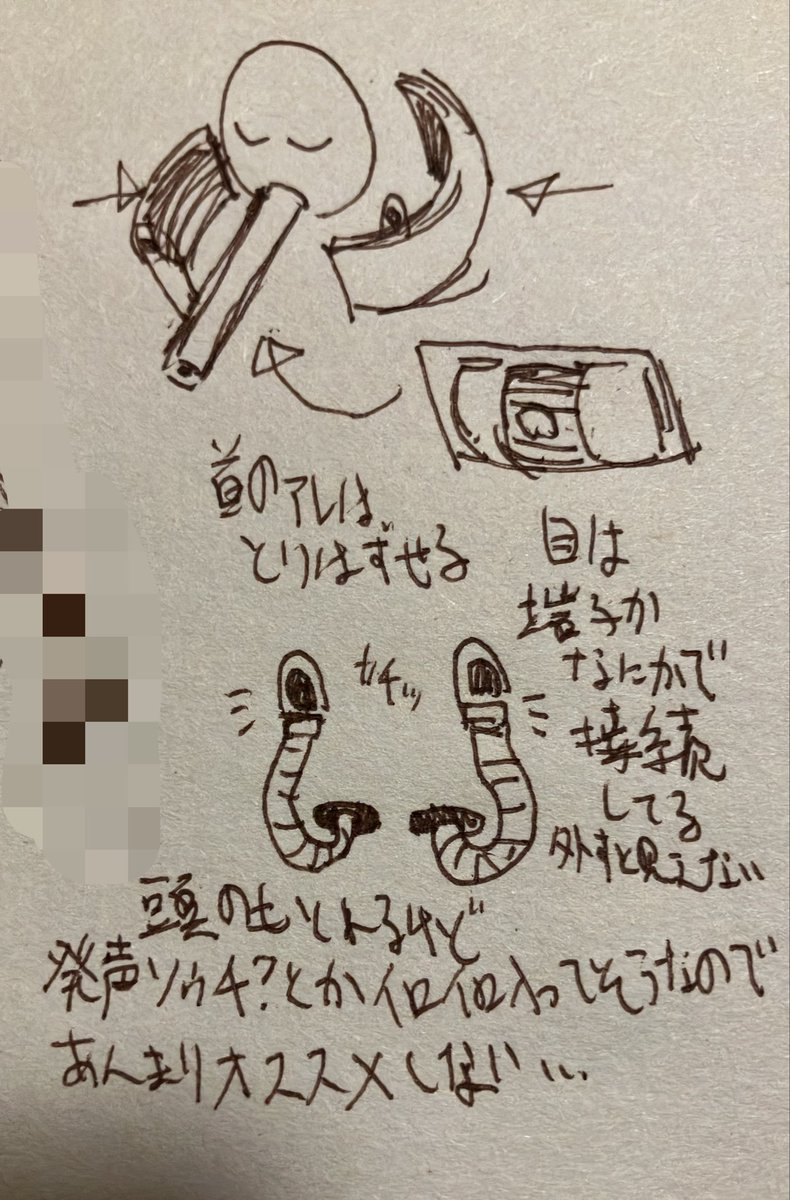 首のアレは、
とりはずせる
目は
端子か
なにかで
接続
してる
外すと見えない
カチッ
頭のもとれるけど
発声ソウチ?とかイロイロ入ってそうなので
あんまりオススメしない…